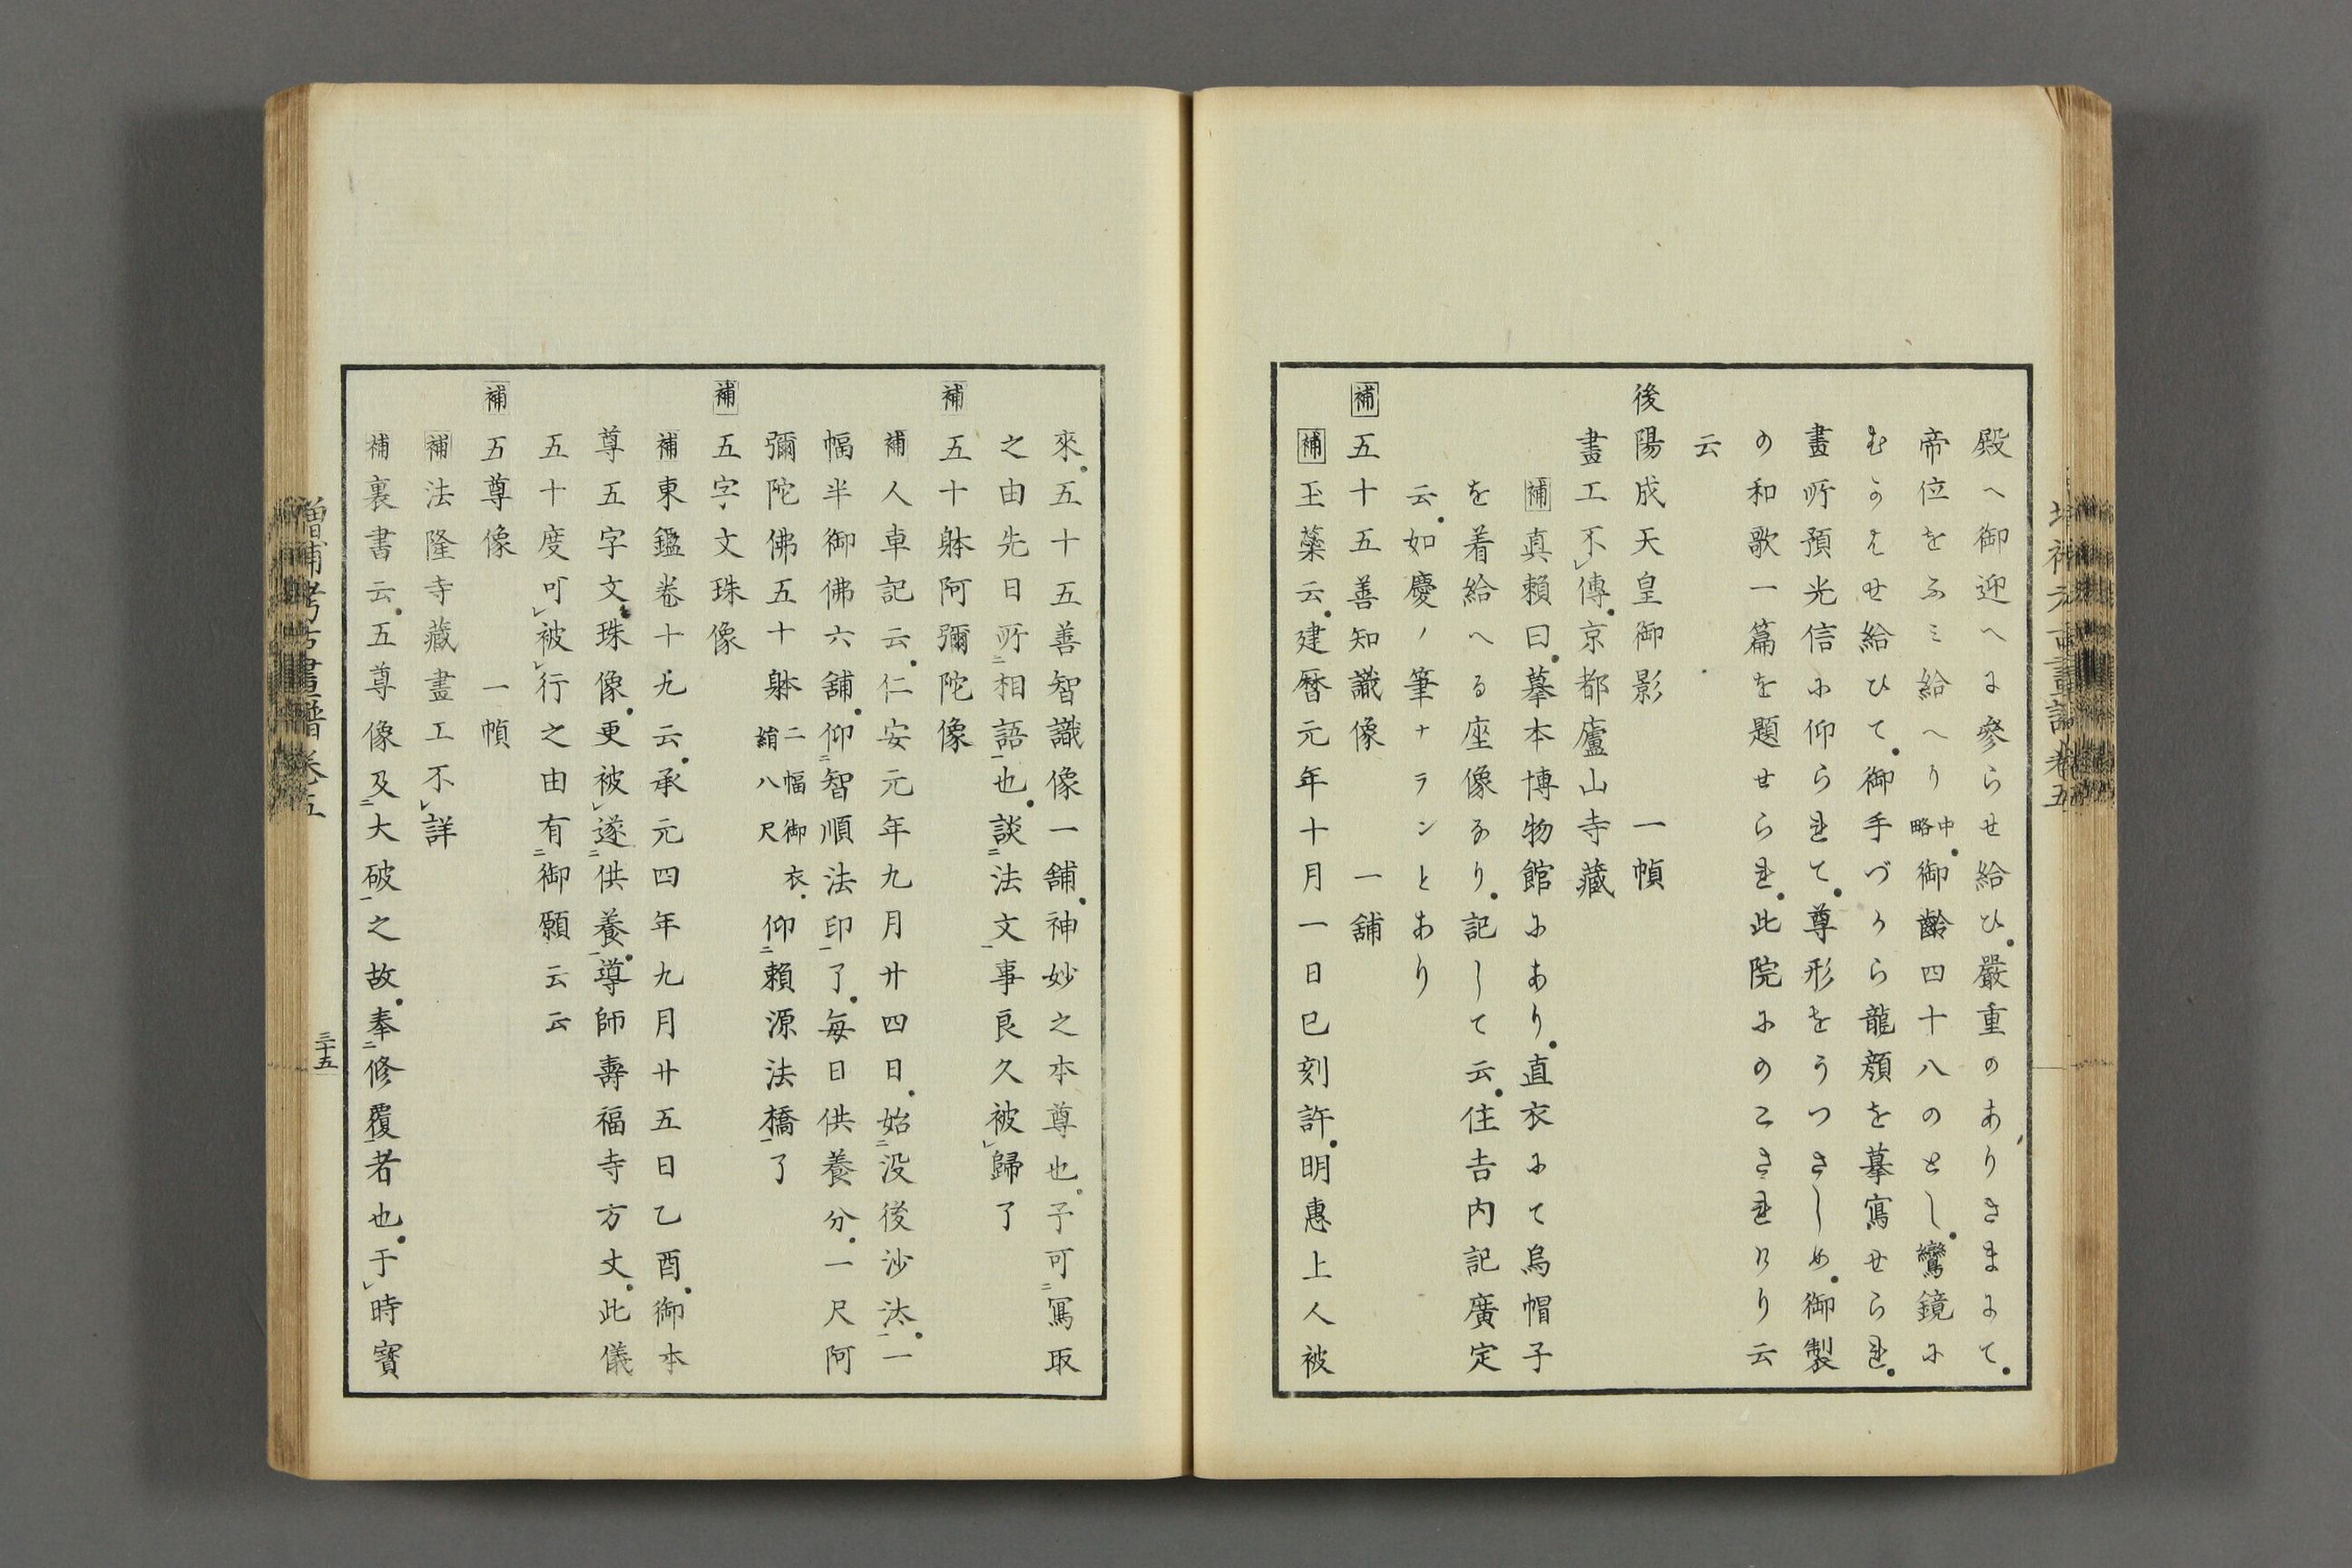 殿へ御迎へに參らせ給ひ。嚴重のありさまにて。
帝位をふミ給へり中略。御齡四十八のとし。鸞鏡に
むかはせ給ひて。御手づから龍顏を摹寫せられ。
畫所預光信に仰られて。尊形をうつさしめ。御製
の和歌一篇を題せられ。此院にのこされけり云
云
後陽成天皇御影　一幀
畫工不傳。京都廬山寺藏
補真賴曰。摹本博物館にあり。直衣にて烏帽子
を着給へる座像なり。記して云。住吉内記廣定
云。如慶ノ筆ナランとあり
補五十五善知識像　一舖
補玉蘂云。建曆元年十月一日巳刻許。明惠上人被
來。五十五善智識像一舖。神妙之本尊也。予可二寫取
之由先日所二相語一也。談二法文一事良久被歸了
補五十躰阿彌陀像
補人車記云。仁安元年九月廿四日。始二没後沙汰一。一
幅半御佛六舖。仰二智順法印一了。每日供養分。一尺阿
彌陀佛五十躰二幅御衣。絹八尺仰二賴源法橋一了
補五字文珠像
補東鑑卷十九云。承元四年九月廿五日乙酉。御本
尊五字文珠像。更被遂二供養一。導師壽福寺方丈。此儀
五十度可被行之由有二御願云云
補五尊像　一幀
補法隆寺藏畫工不詳
補裏書云。五尊像及二大破一之故。奉二修覆一者也。于時寶
增補考古畫譜 卷五
三十五